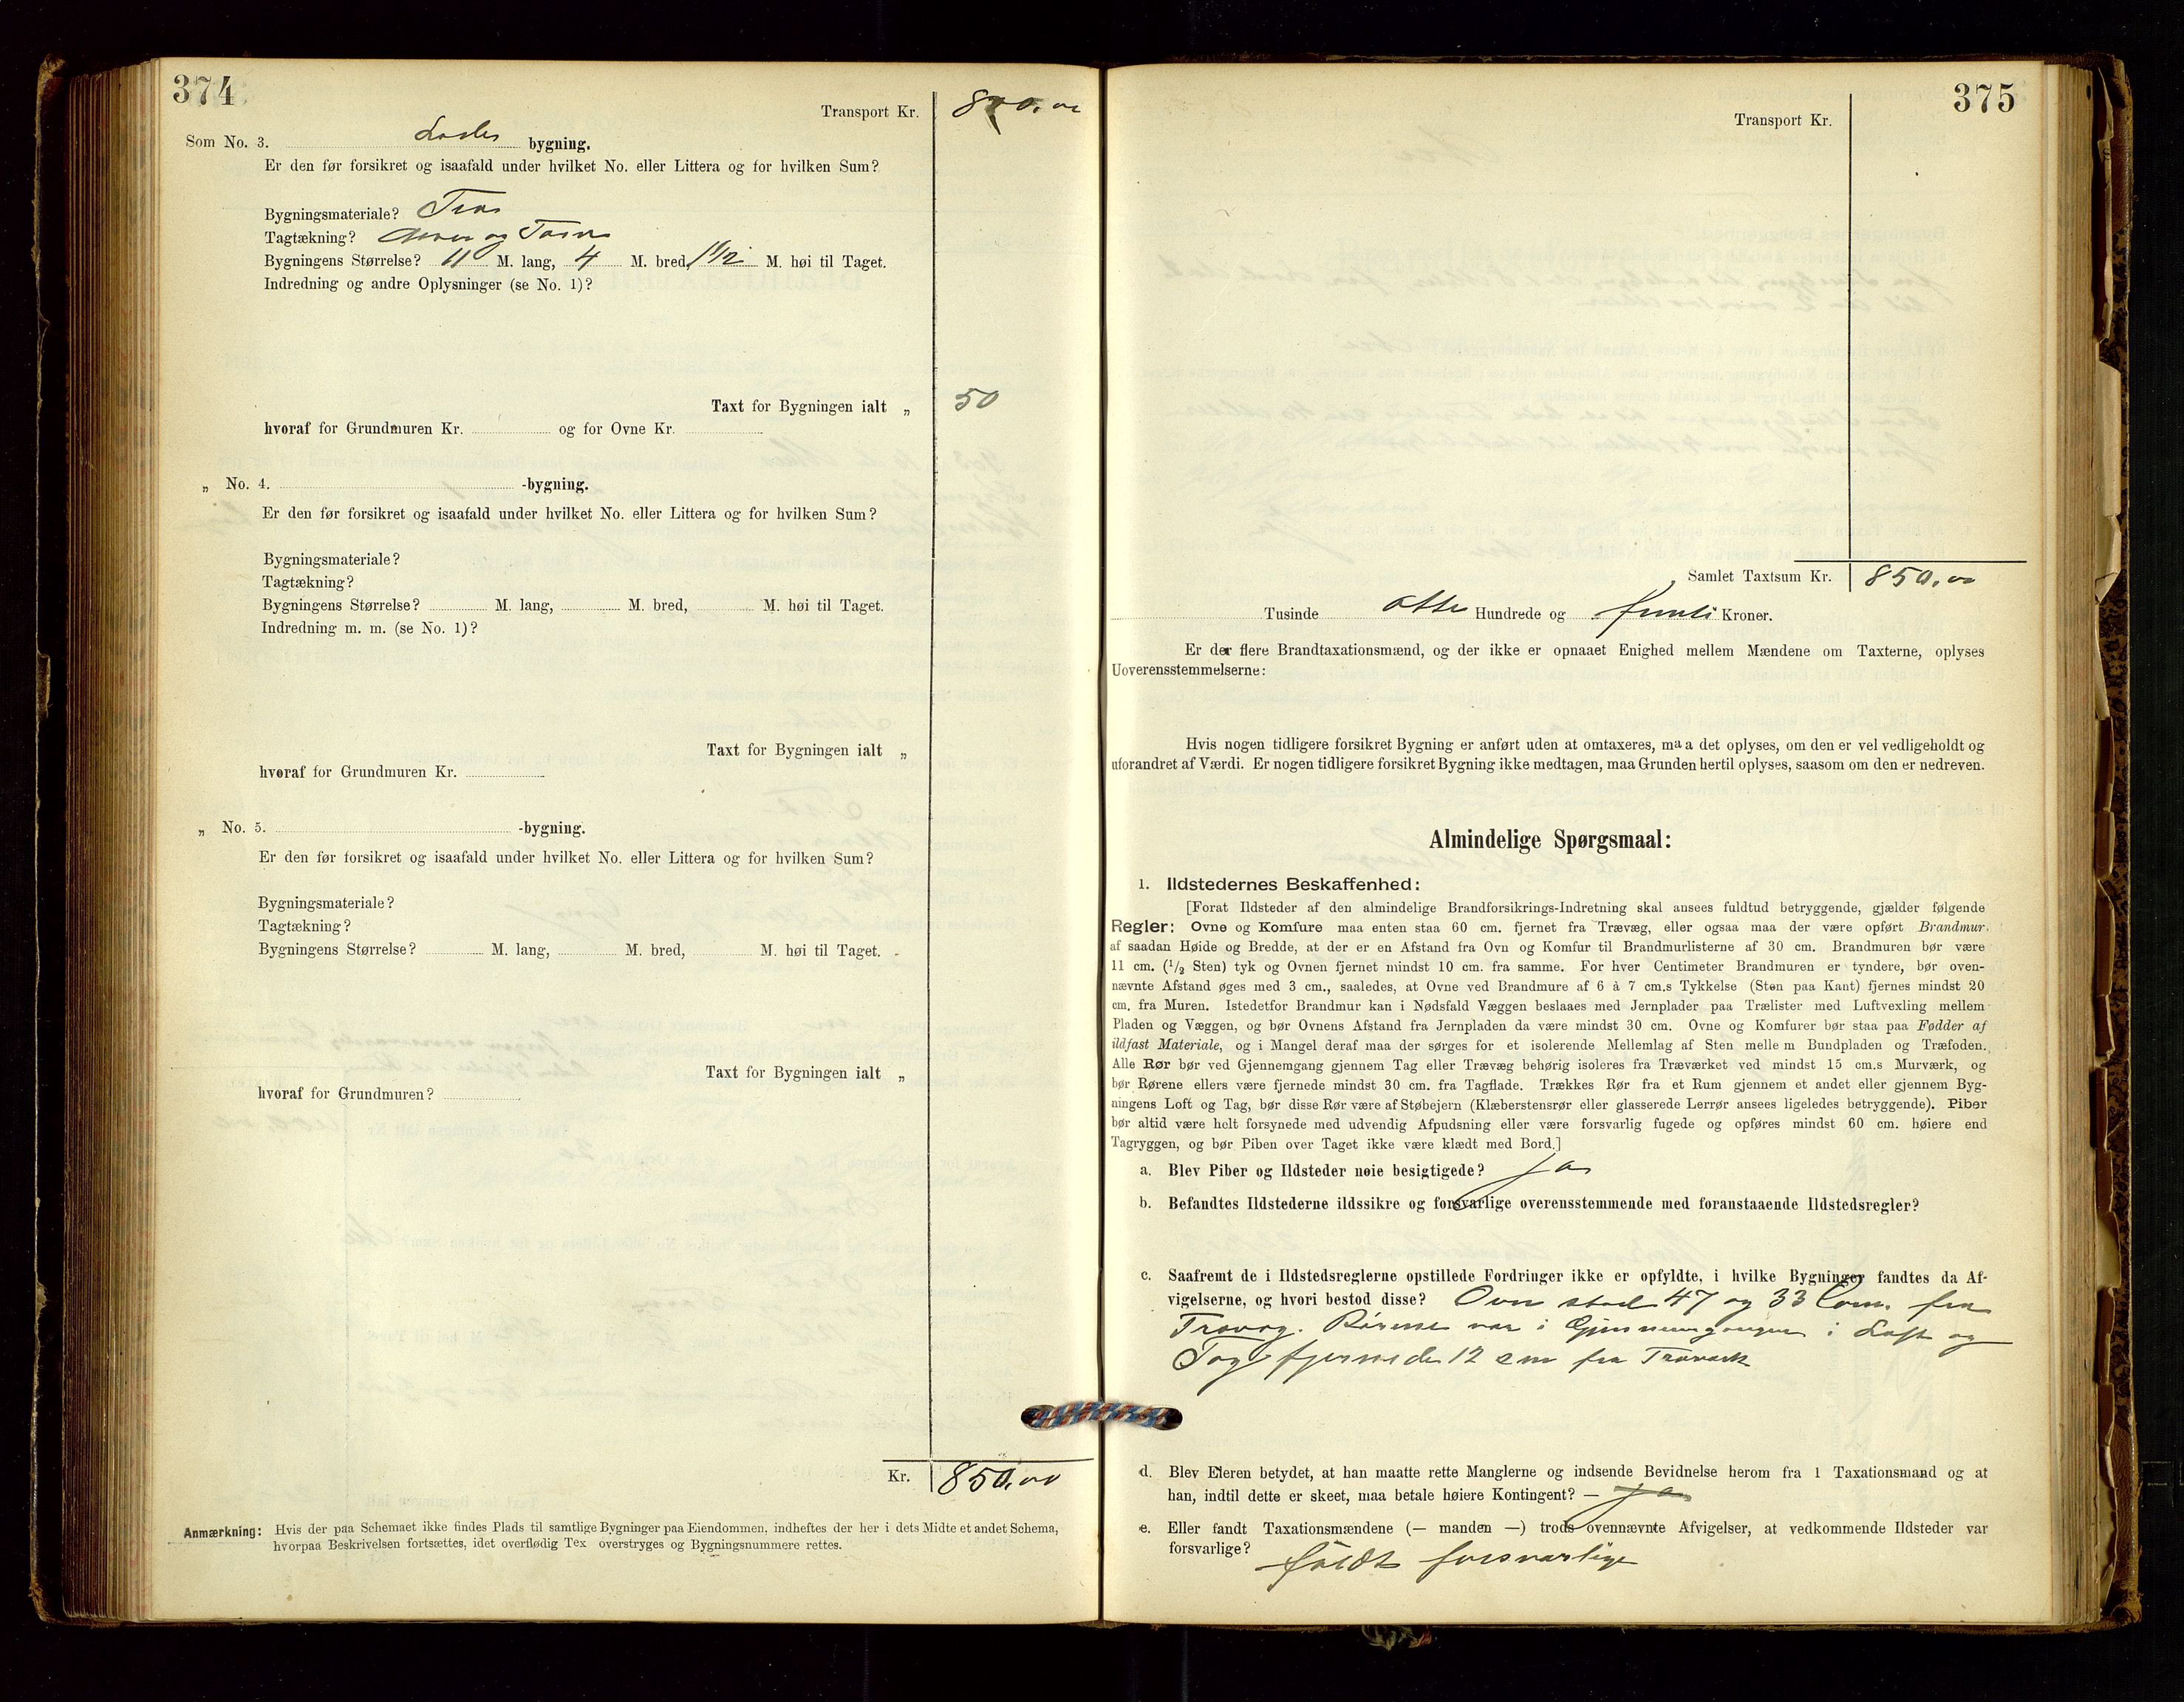 374
Transport Kr. 800,00
Som No. 3. Lade bygning.
Er den før forsikret og isaafald under hvilket No. eller Littera og for hvilken Sum?
Bygningsmateriale? Træ
Tagtækning? Never og Torv
Bygningens Størrelse? 11 M. lang, 4 M. bred, 1 1/2 M. høi til Taget.
Indredning og andre Oplysninger (se No. 1)?
Taxt for Bygningen ialt „ 50
hvoraf for Grundmuren Kr. og for Ovne Kr.
„ No. 4. -bygning.
Er den før forsikret og isaafald under hvilket No. eller Littera og for hvilken Sum?
Bygningsmateriale?
Tagtækning?
Bygningens Størrelse? M. lang, M. bred, M. høi til Taget.
Indredning m. m. (se No. 1)?
Taxt for Bygningen ialt „
hvoraf for Grundmuren Kr.
„ No. 5. -bygning.
Er den før forsikret og isaafald under hvilket No. eller Littera og for hvilken Sum?
Bygningsmateriale?
Tagtækning?
Bygningens Størrelse? M. lang, M. bred, M. høi til Taget.
Taxt for Bygningen ialt „
hvoraf for Grundmuren?
Kr. 850,00
Anmærkning: Hvis der paa Schemaet ikke findes Plads til samtlige Bygninger paa Eiendommen, indheftes der her i dets Midte et andet Schema,
hvorpaa Beskrivelsen fortsættes, idet overflødig Tex overstryges og Bygningsnummere rettes.
375
Transport Kr.
Samlet Taxtsum Kr. 850,00
Tusinde otte Hundrede og femti Kroner.
Er der flere Brandtaxationsmænd, og der ikke er opnaaet Enighed mellem Mændene om Taxterne, oplyses
Uoverensstemmelserne:
Hvis nogen tidligere forsikret Bygning er anført uden at omtaxeres, maa det oplyses, om den er vel vedligeholdt og
uforandret af Værdi. Er nogen tidligere forsikret Bygning ikke medtagen, maa Grunden hertil oplyses, saasom om den er nedreven.
Almindelige Spørgsmaal:
1. Ildstedernes Beskaffenhed:
[Forat Ildsteder af den almindelige Brandforsikrings-Indretning skal ansees fuldtud betryggende, gjælder følgende
Regler: Ovne og Komfure maa enten staa 60 cm. fjernet fra Trævæg, eller ogsaa maa der være opført Brandmur
af saadan Høide og Bredde, at der er en Afstand fra Ovn og Komfur til Brandmurlisterne af 30 cm. Brandmuren bør være
11 cm. (1/2 Sten) tyk og Ovnen fjernet mindst 10 cm. fra samme. For hver Centimeter Brandmuren er tyndere, bør oven-
nævnte Afstand øges med 3 cm., saaledes, at Ovne ved Brandmure af 6 à 7 cm.s Tykkelse (Sten paa Kant) fjernes mindst 20
cm. fra Muren. Istedetfor Brandmur kan i Nødsfald Væggen beslaaes med Jernplader paa Trælister med Luftvexling mellem
Pladen og Væggen, og bør Ovnens Afstand fra Jernpladen da være mindst 30 cm. Ovne og Komfurer bør staa paa Fødder af
ildfast Materiale, og i Mangel deraf maa der sørges for et isolerende Mellemlag af Sten mellem Bundpladen og Træfoden.
Alle Rør bør ved Gjennemgang gjennem Tag eller Trævæg behørig isoleres fra Træværket ved mindst 15 cm.s Murværk, og
bør Rørene ellers være fjernede mindst 30 cm. fra Tagflade. Trækkes Rør fra et Rum gjennem et andet eller gjennem Byg-
ningens Loft og Tag, bør disse Rør være af Støbejern (Klæberstensrør eller glasserede Lerrør ansees ligeledes betryggende). Piber
bør altid være helt forsynede med udvendig Afpudsning eller være forsvarlig fugede og opføres mindst 60 cm. høiere end
Tagryggen, og bør Piben over Taget ikke være klædt med Bord.]
a. Blev Piber og Ildsteder nøie besigtigede? Ja
b. Befandtes Ildstederne ildssikre og forsvarlige overensstemmende med foranstaaende Ildstedsregler?
c. Saafremt de i Ildstedsreglerne opstillede Fordringer ikke er opfyldte, i hvilke Bygninger fandtes da Af-
vigelserne, og hvori bestod disse? Ovn stod 47 og 33 Com. fra
Trævæg. Rørene var i Gjennemgangen i Loft og
Tag fjernede 12 cm fra Træværk
d. Blev Eieren betydet, at han maatte rette Manglerne og indsende Bevidnelse herom fra 1 Taxationsmand og at
han, indtil dette er skeet, maa betale høiere Kontingent? — Ja
e. Eller fandt Taxationsmændene (— manden —) trods ovennævnte Afvigelser, at vedkommende Ildsteder var
forsvarlige? fuldt forsvarlige